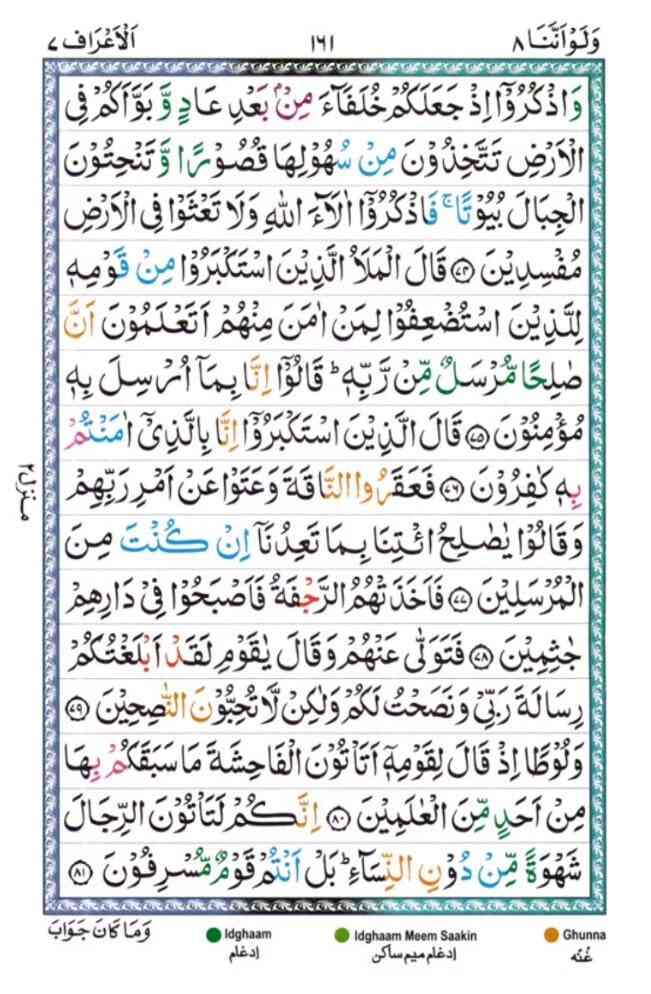 وَلَوْ اَنَّنَا ٨
١٦١
اَلْاَعْرَاف ٧
وَاذْكُرُوْٓا اِذْ جَعَلَكُمْ خُلَفَآءَ مِنْۢ بَعْدِ عَادٍ وَّ بَوَّاَكُمْ فِی
الْاَرْضِ تَتَّخِذُوْنَ مِنْ سُهُوْلِهَا قُصُوْرًا وَّ تَنْحِتُوْنَ
الْجِبَالَ بُیُوْتًا ۚ فَاذْكُرُوْٓا اٰلَآءَ اللهِ وَلَا تَعْثَوْا فِی الْاَرْضِ
مُفْسِدِیْنَ ﴿٧٤﴾ قَالَ الْمَلَاُ الَّذِیْنَ اسْتَكْبَرُوْا مِنْ قَوْمِهٖ
لِلَّذِیْنَ اسْتُضْعِفُوْا لِمَنْ اٰمَنَ مِنْهُمْ اَتَعْلَمُوْنَ اَنَّ
صٰلِحًا مُّرْسَلٌ مِّنْ رَّبِّهٖ ؕ قَالُوْٓا اِنَّا بِمَآ اُرْسِلَ بِهٖ
مُؤْمِنُوْنَ ﴿٧٥﴾ قَالَ الَّذِیْنَ اسْتَكْبَرُوْٓا اِنَّا بِالَّذِیْٓ اٰمَنْتُمْ
بِهٖ كٰفِرُوْنَ ﴿٧٦﴾ فَعَقَرُوا النَّاقَةَ وَعَتَوْا عَنْ اَمْرِ رَبِّهِمْ
وَقَالُوْا یٰصٰلِحُ ائْتِنَا بِمَا تَعِدُنَآ اِنْ كُنْتَ مِنَ
الْمُرْسَلِیْنَ ﴿٧٧﴾ فَاَخَذَتْهُمُ الرَّجْفَةُ فَاَصْبَحُوْا فِیْ دَارِهِمْ
جٰثِمِیْنَ ﴿٧٨﴾ فَتَوَلّٰی عَنْهُمْ وَقَالَ یٰقَوْمِ لَقَدْ اَبْلَغْتُكُمْ
رِسَالَةَ رَبِّیْ وَنَصَحْتُ لَكُمْ وَلٰكِنْ لَّا تُحِبُّوْنَ النّٰصِحِیْنَ ﴿٧٩﴾
وَلُوْطًا اِذْ قَالَ لِقَوْمِهٖٓ اَتَاْتُوْنَ الْفَاحِشَةَ مَا سَبَقَكُمْ بِهَا
مِنْ اَحَدٍ مِّنَ الْعٰلَمِیْنَ ﴿٨٠﴾ اِنَّكُمْ لَتَاْتُوْنَ الرِّجَالَ
شَهْوَةً مِّنْ دُوْنِ النِّسَآءِ ؕ بَلْ اَنْتُمْ قَوْمٌ مُّسْرِفُوْنَ ﴿٨١﴾
منزل ٢
وَمَا كَانَ جَوَابَ
Idghaam
ادغام
Idghaam Meem Saakin
ادغام ميم ساكن
Ghunna
غُنّه